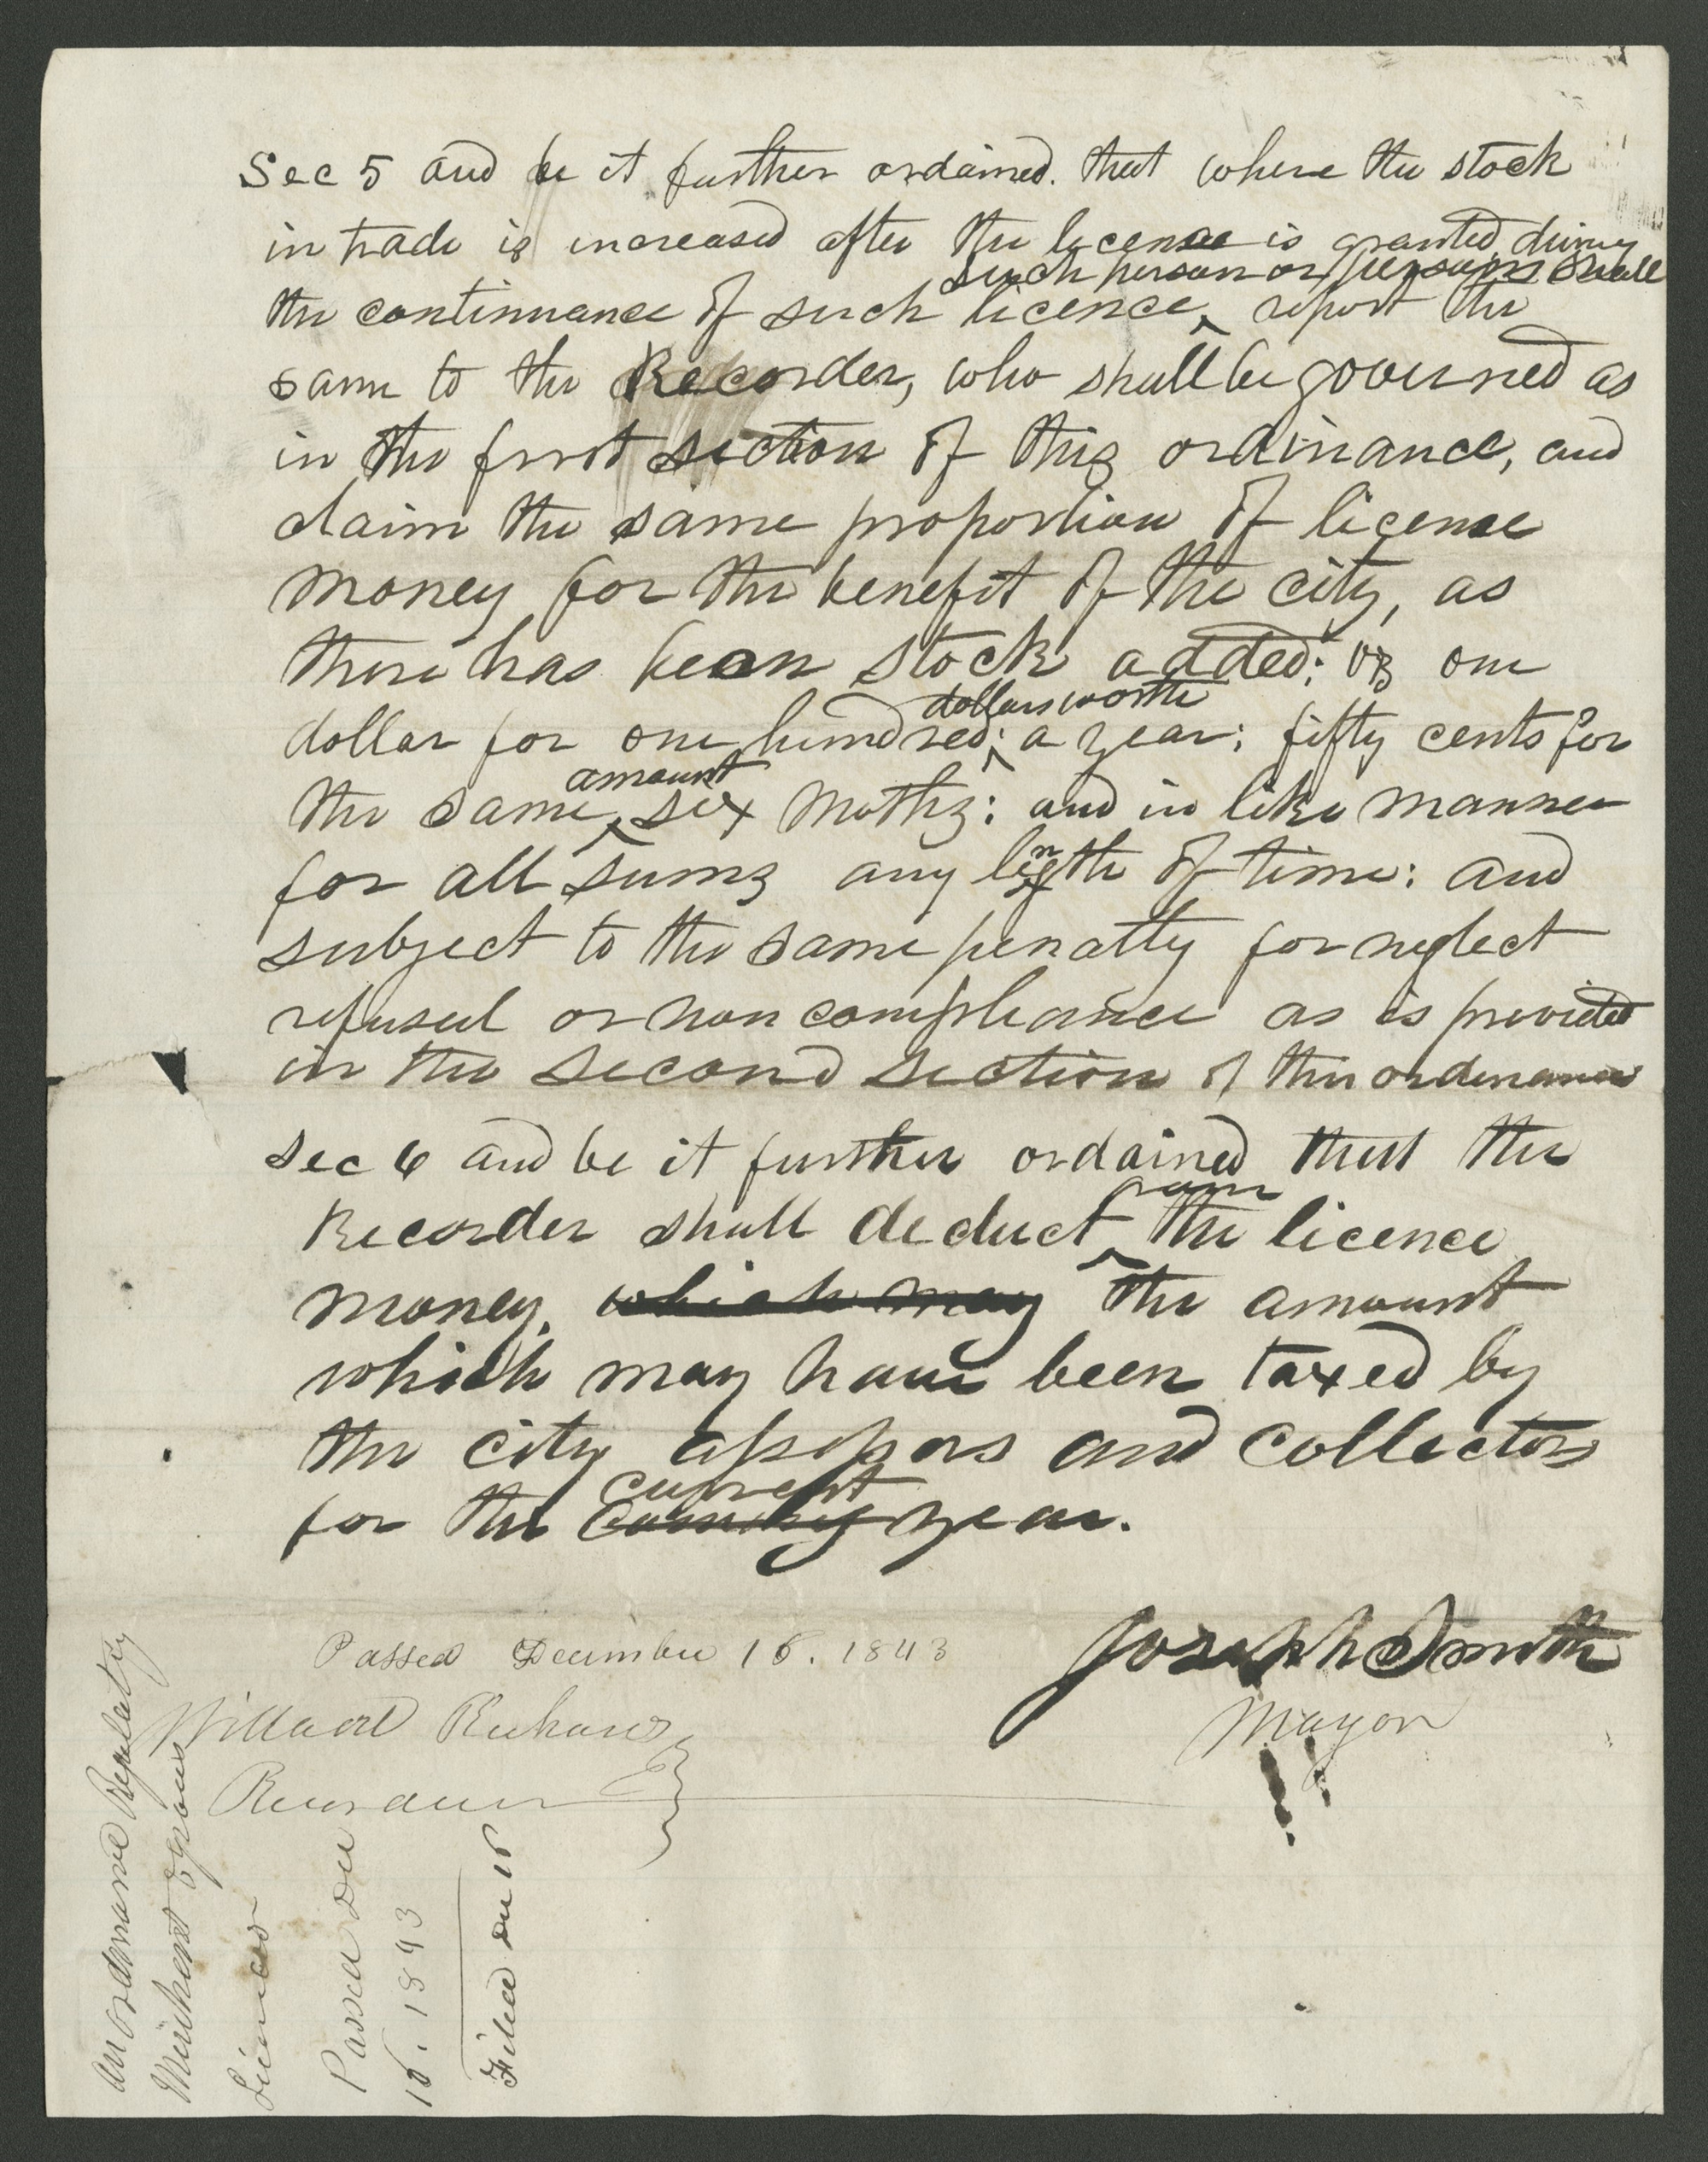 Sec 5 and be it further ordained. that where the stock
in trade is increased after the license is granted, during
such person or persons shall
the continuance of such licence, ‸ report the
same to the Recorder, who shall be governed as
in the first section of this ordinance, and
claim the same proportion of license
money for the benefit of the city, as
there has been stock added: or one
dollars worth
dollar for one hundred; ‸ a year; fifty cents for
amount
the same ‸ six moths: and in like manner
for all sums any length of time: and
subject to the same penalty for neglect
refusal or non compliance as is provided
in the second section of this ordinance
Sec 6 and be it further ordained that the
from
Recorder shall deduct ‸ the licence
money, which may the amount
which may have been taxed by
the city assessors and collectors
current
for the year.
Joseph Smith
Passed December 16. 1843
Mayor
Willard Richards
Recorder
An ordinance Regulating
Merchant & grocers
Licences
Passed Dec
16. 1843
Filed Dec 16